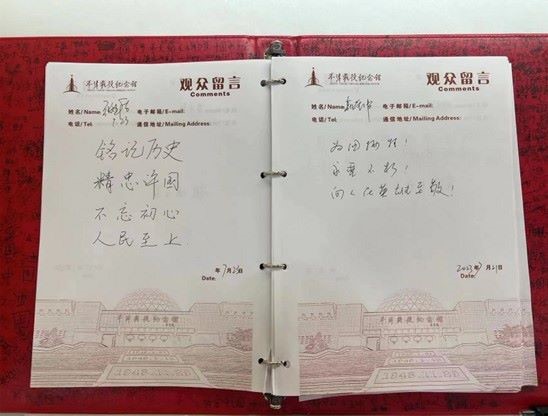 观众留言
Comments
姓名/Name:
电子邮箱/E-mail:
电话/Tel:
通信地址/Mailing Address:
铭记历史
精忠许国
不忘初心
人民至上
年7月23日
Date:
平津战役纪念馆
平津战役纪念馆
观众留言
Comments
姓名/Name:
电子邮箱/E-mail:
电话/Tel:
通信地址/Mailing Address:
为国牺牲!
永垂不朽!
向人民英雄致敬!
2023年7月21日
Date:
平津战役纪念馆
平津战役纪念馆